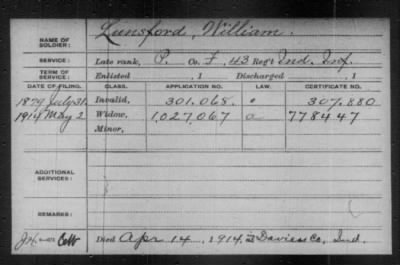 NAME OF SOLDIER: Lunsford, William.
SERVICE: Late rank, P. Co. F, 43 Reg't Ind. Inf.
TERM OF SERVICE: Enlisted , 1 Discharged , 1
DATE OF FILING. CLASS. APPLICATION NO. LAW. CERTIFICATE NO.
1879 July 31. Invalid, 301.068. 307.880
1914 May 2 Widow, 1,027,067 a 778447
Minor,
ADDITIONAL SERVICES:
REMARKS:
Died Apr 14, 1914, at Daviess Co, Ind.